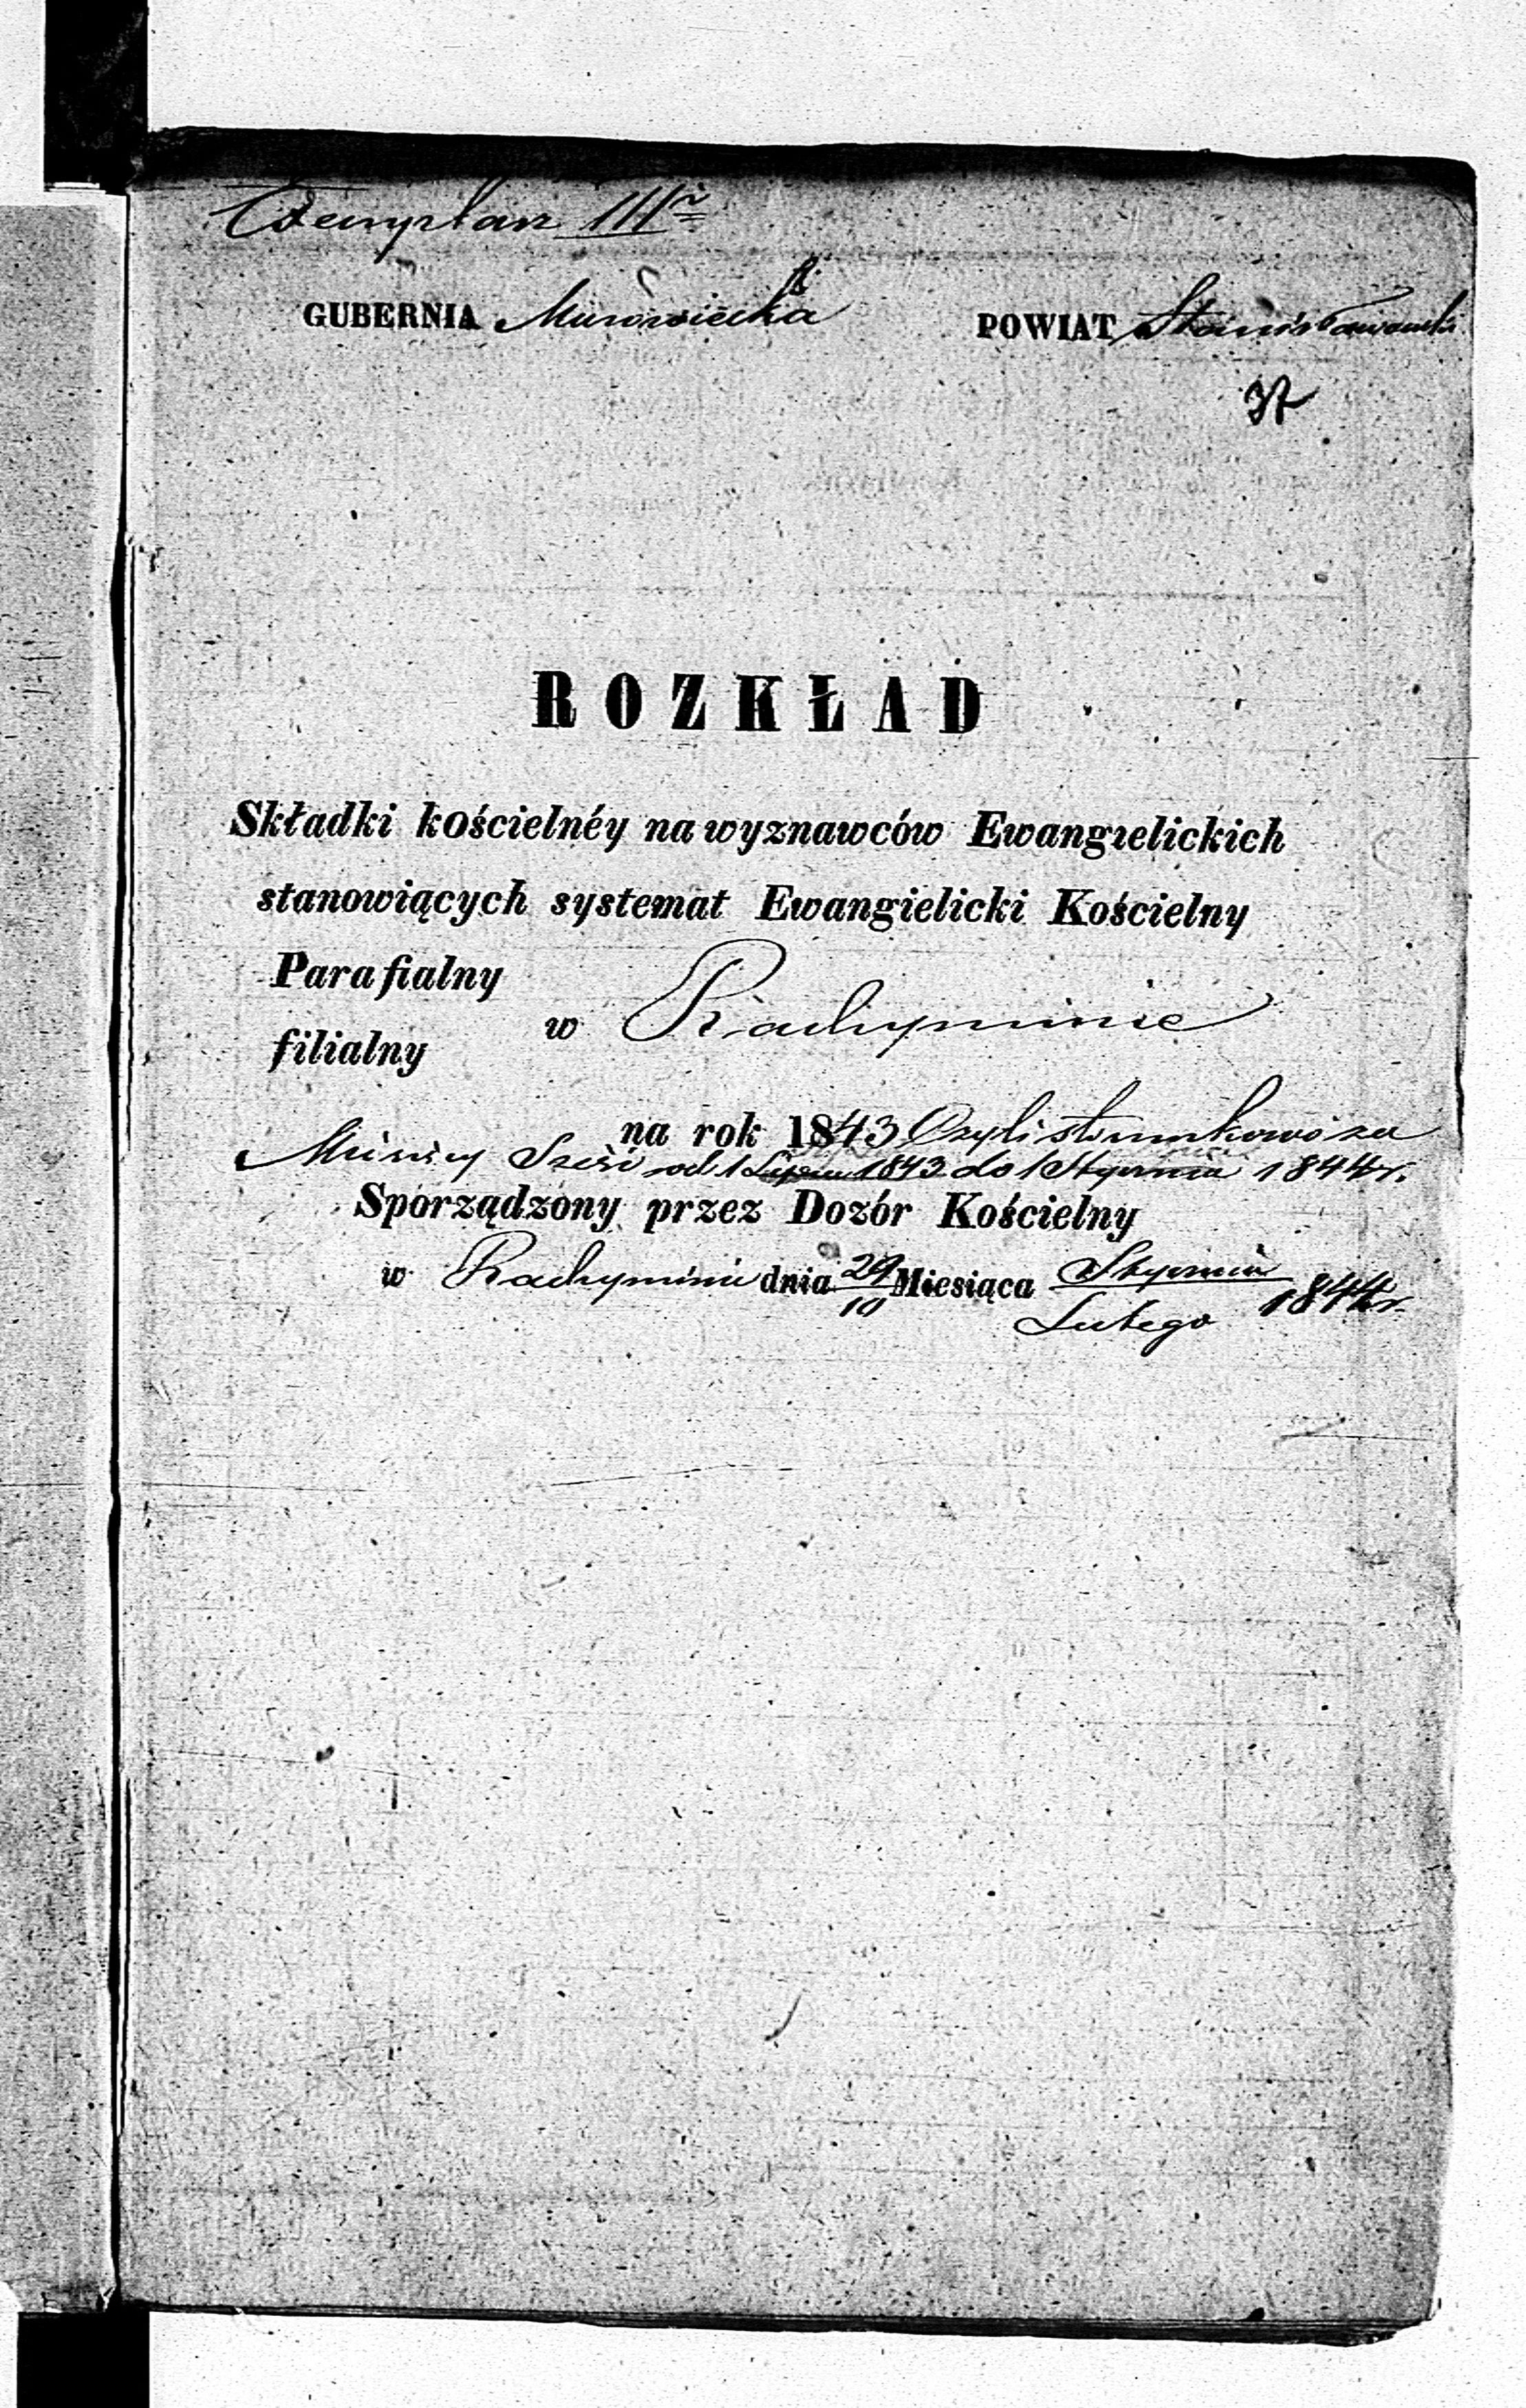 Exemplarz IIIci
GUBERNIA Mazowiecka POWIAT Stanisławowski
37
ROZKŁAD
Składki kościelnéy na wyznawców Ewangielickich
stanowiących systemat Ewangielicki Kościelny
Parafialny
w Radzyminie
filialny
na rok 1843 Czyli stosunkowo za
Miesięcy Sześć od 1 Lipca 1843 do 1 Stycznia 1844 r.
Sporządzony przez Dozór Kościelny
w Radzyminie dnia 29/10 Miesiąca Stycznia/Lutego 1844 r.